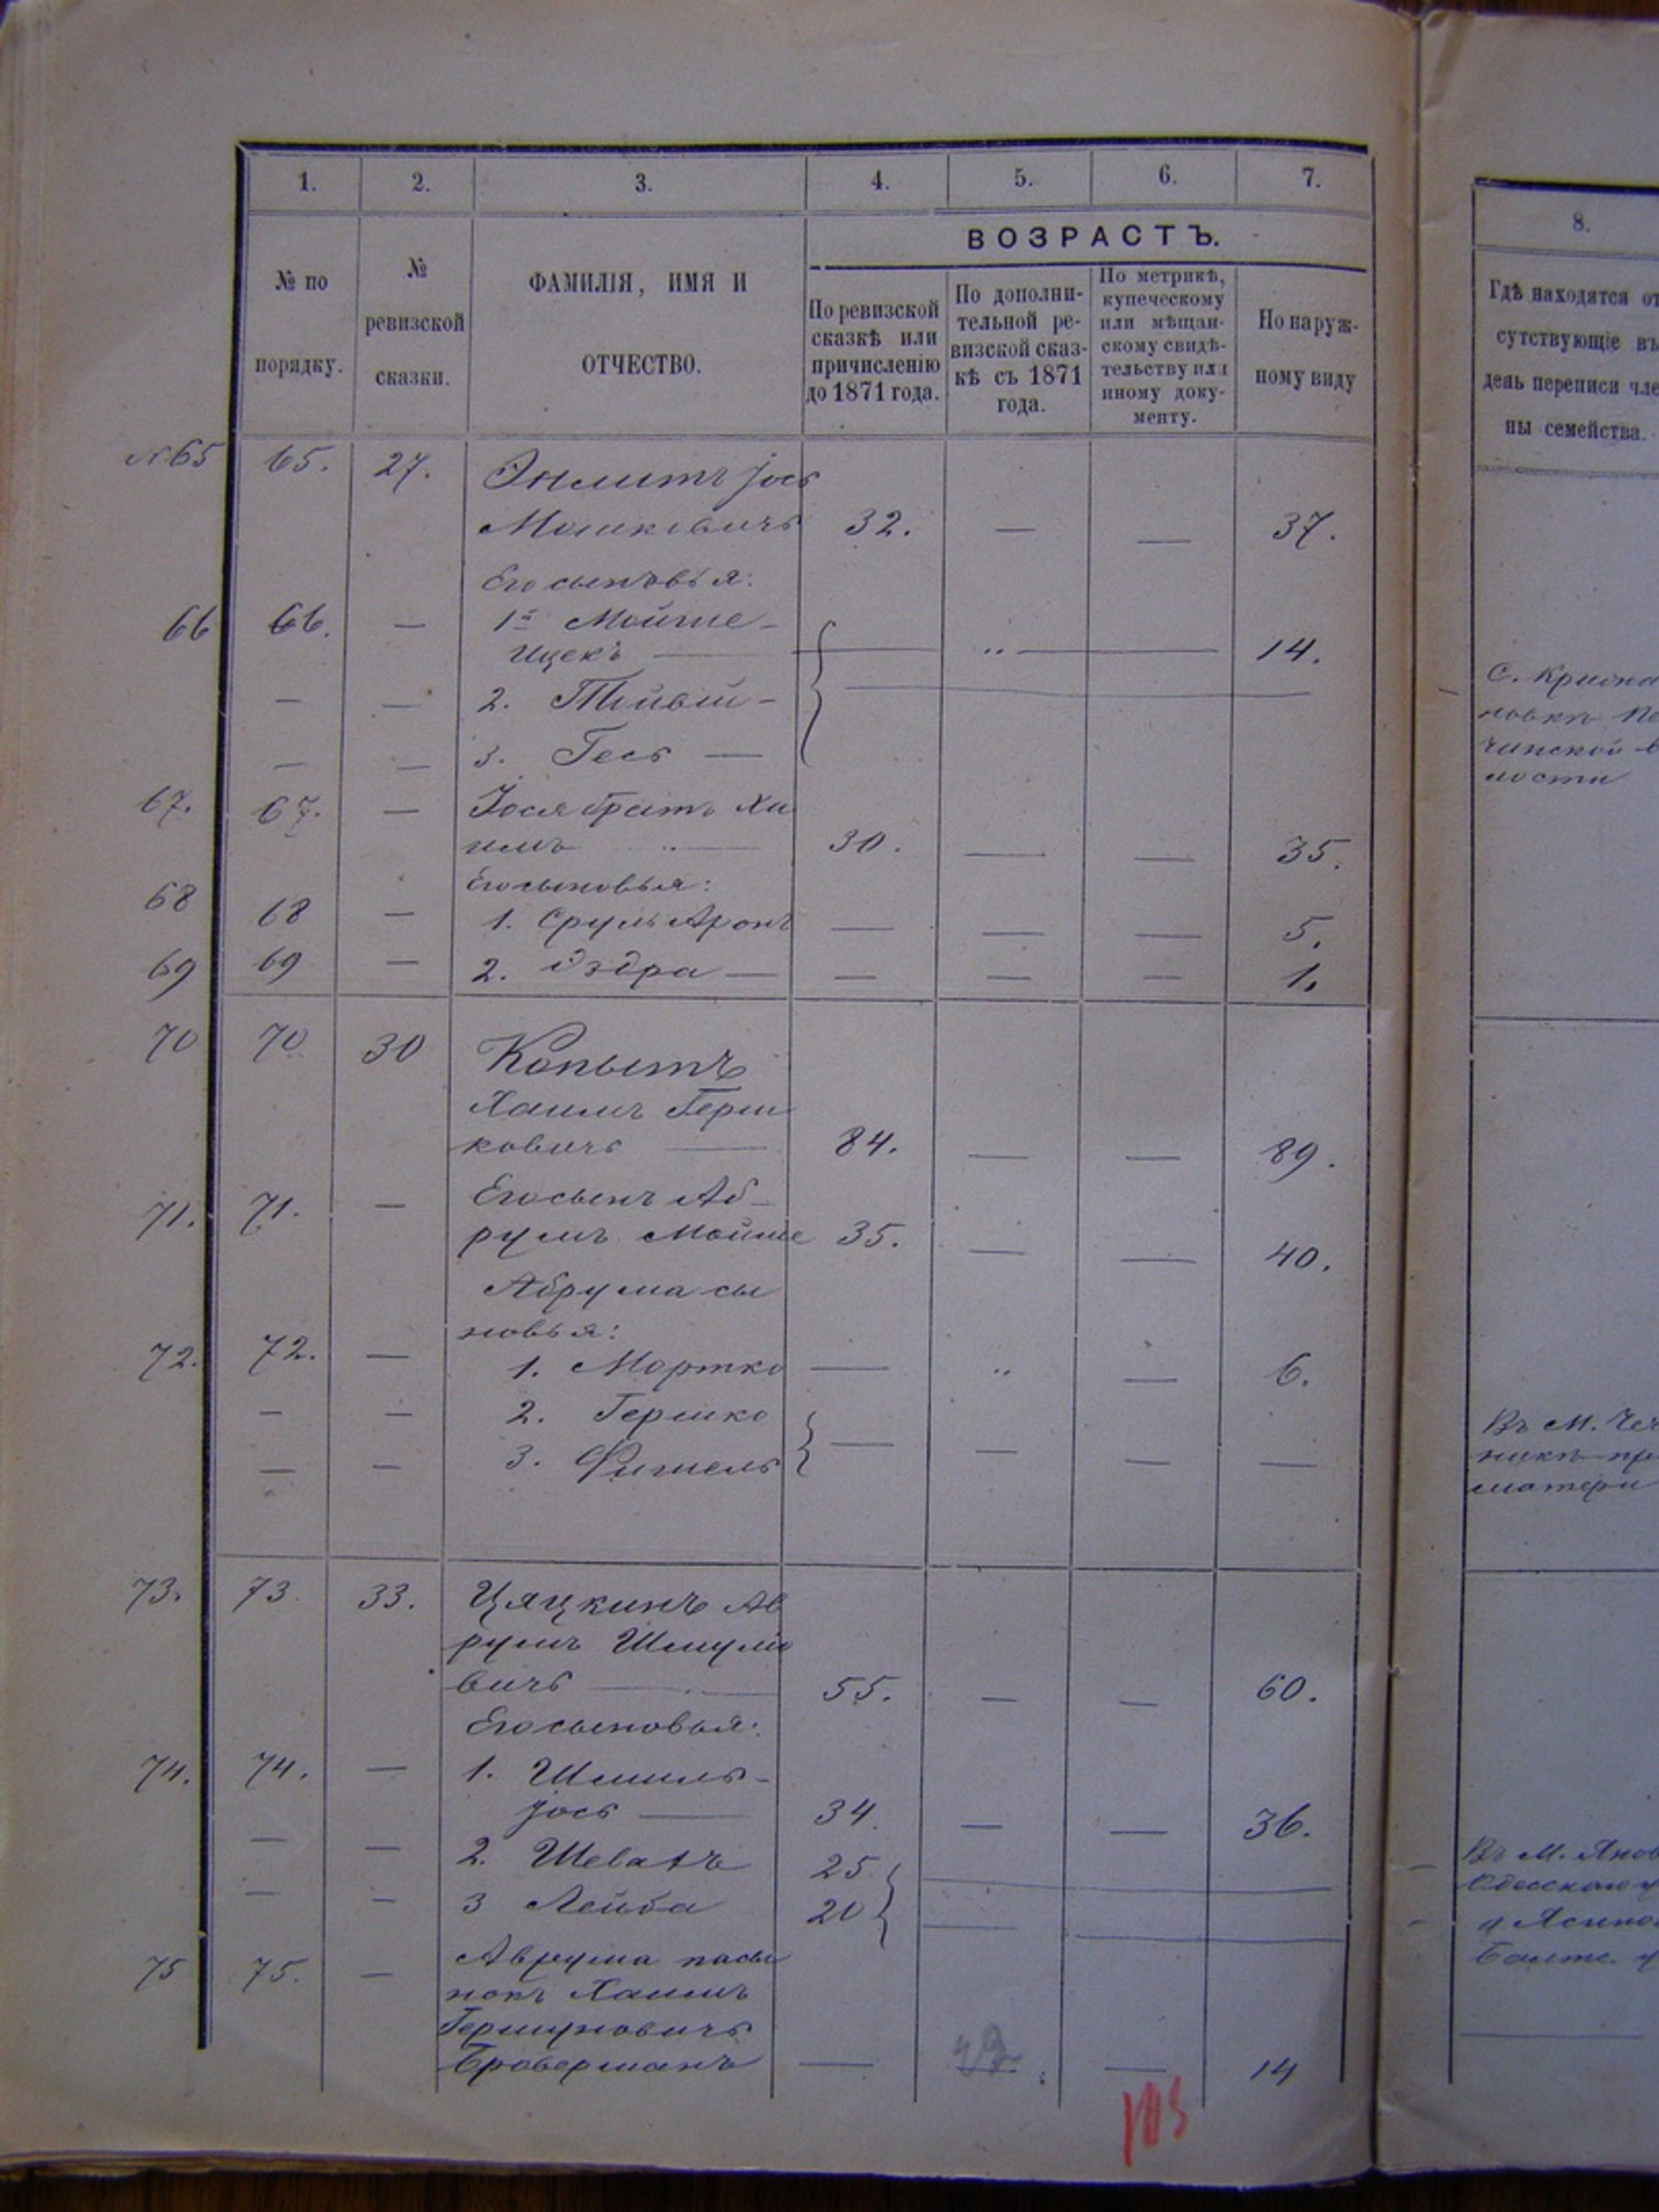 1. 2. 3. 4. 5. 6. 7.
ВОЗРАСТЪ.
№ по порядку.
№ ревизской сказки.
ФАМИЛІЯ, ИМЯ И
ОТЧЕСТВО.
По ревизской
сказкѣ или
причисленію
до 1871 года.
По дополни-
тельной ре-
визской сказ-
кѣ съ 1871
года.
По метрикѣ,
купеческому
или мѣщан-
скому свидѣ-
тельству или
иному доку-
менту.
По наруж-
ному виду
№65 65. 27. Іось
Мошковичъ 32. — — 37.
Его сыновья:
66 66. — 1й Мойше-
Ицекъ — — " — 14.
— — 2.
— — 3. Гесь —
67. 67. — Іося братъ Ха
имъ 30. — — 35.
Его сыновья:
68 68 — 1. Сруль Аронъ — — — 5.
69 69 — 2. Эздра — — — — 1.
70 70 30 Копытъ
Хаимъ Герш
ковичъ — 84. — — 89.
71. 71. — Его сынъ Аб-
румъ Мойше 35. — — 40.
Абрума сы
новья:
72. 72. — 1. Мортко — " — 6.
— — 2. Гершко
— — 3. Фишель — — — —
73. 73. 33. Цяцкинъ Ав
румъ Шмуліо
вичъ — 55. — — 60.
Его сыновья:
74. 74. — 1. Шмиль-
Іось — 34. — — 36.
— — 2. 25
— — 3 Лейба 20
75 75. — Аврума пасы
нокъ Хаимъ
Гершуновичъ
Броверманъ — — 14
103
8.
Гдѣ находятся от
сутствующіе въ
день переписи чле
ны семейства.
Въ М. Чеч
матери
Въ М. Янов
Одесскаго у
Балтс. у